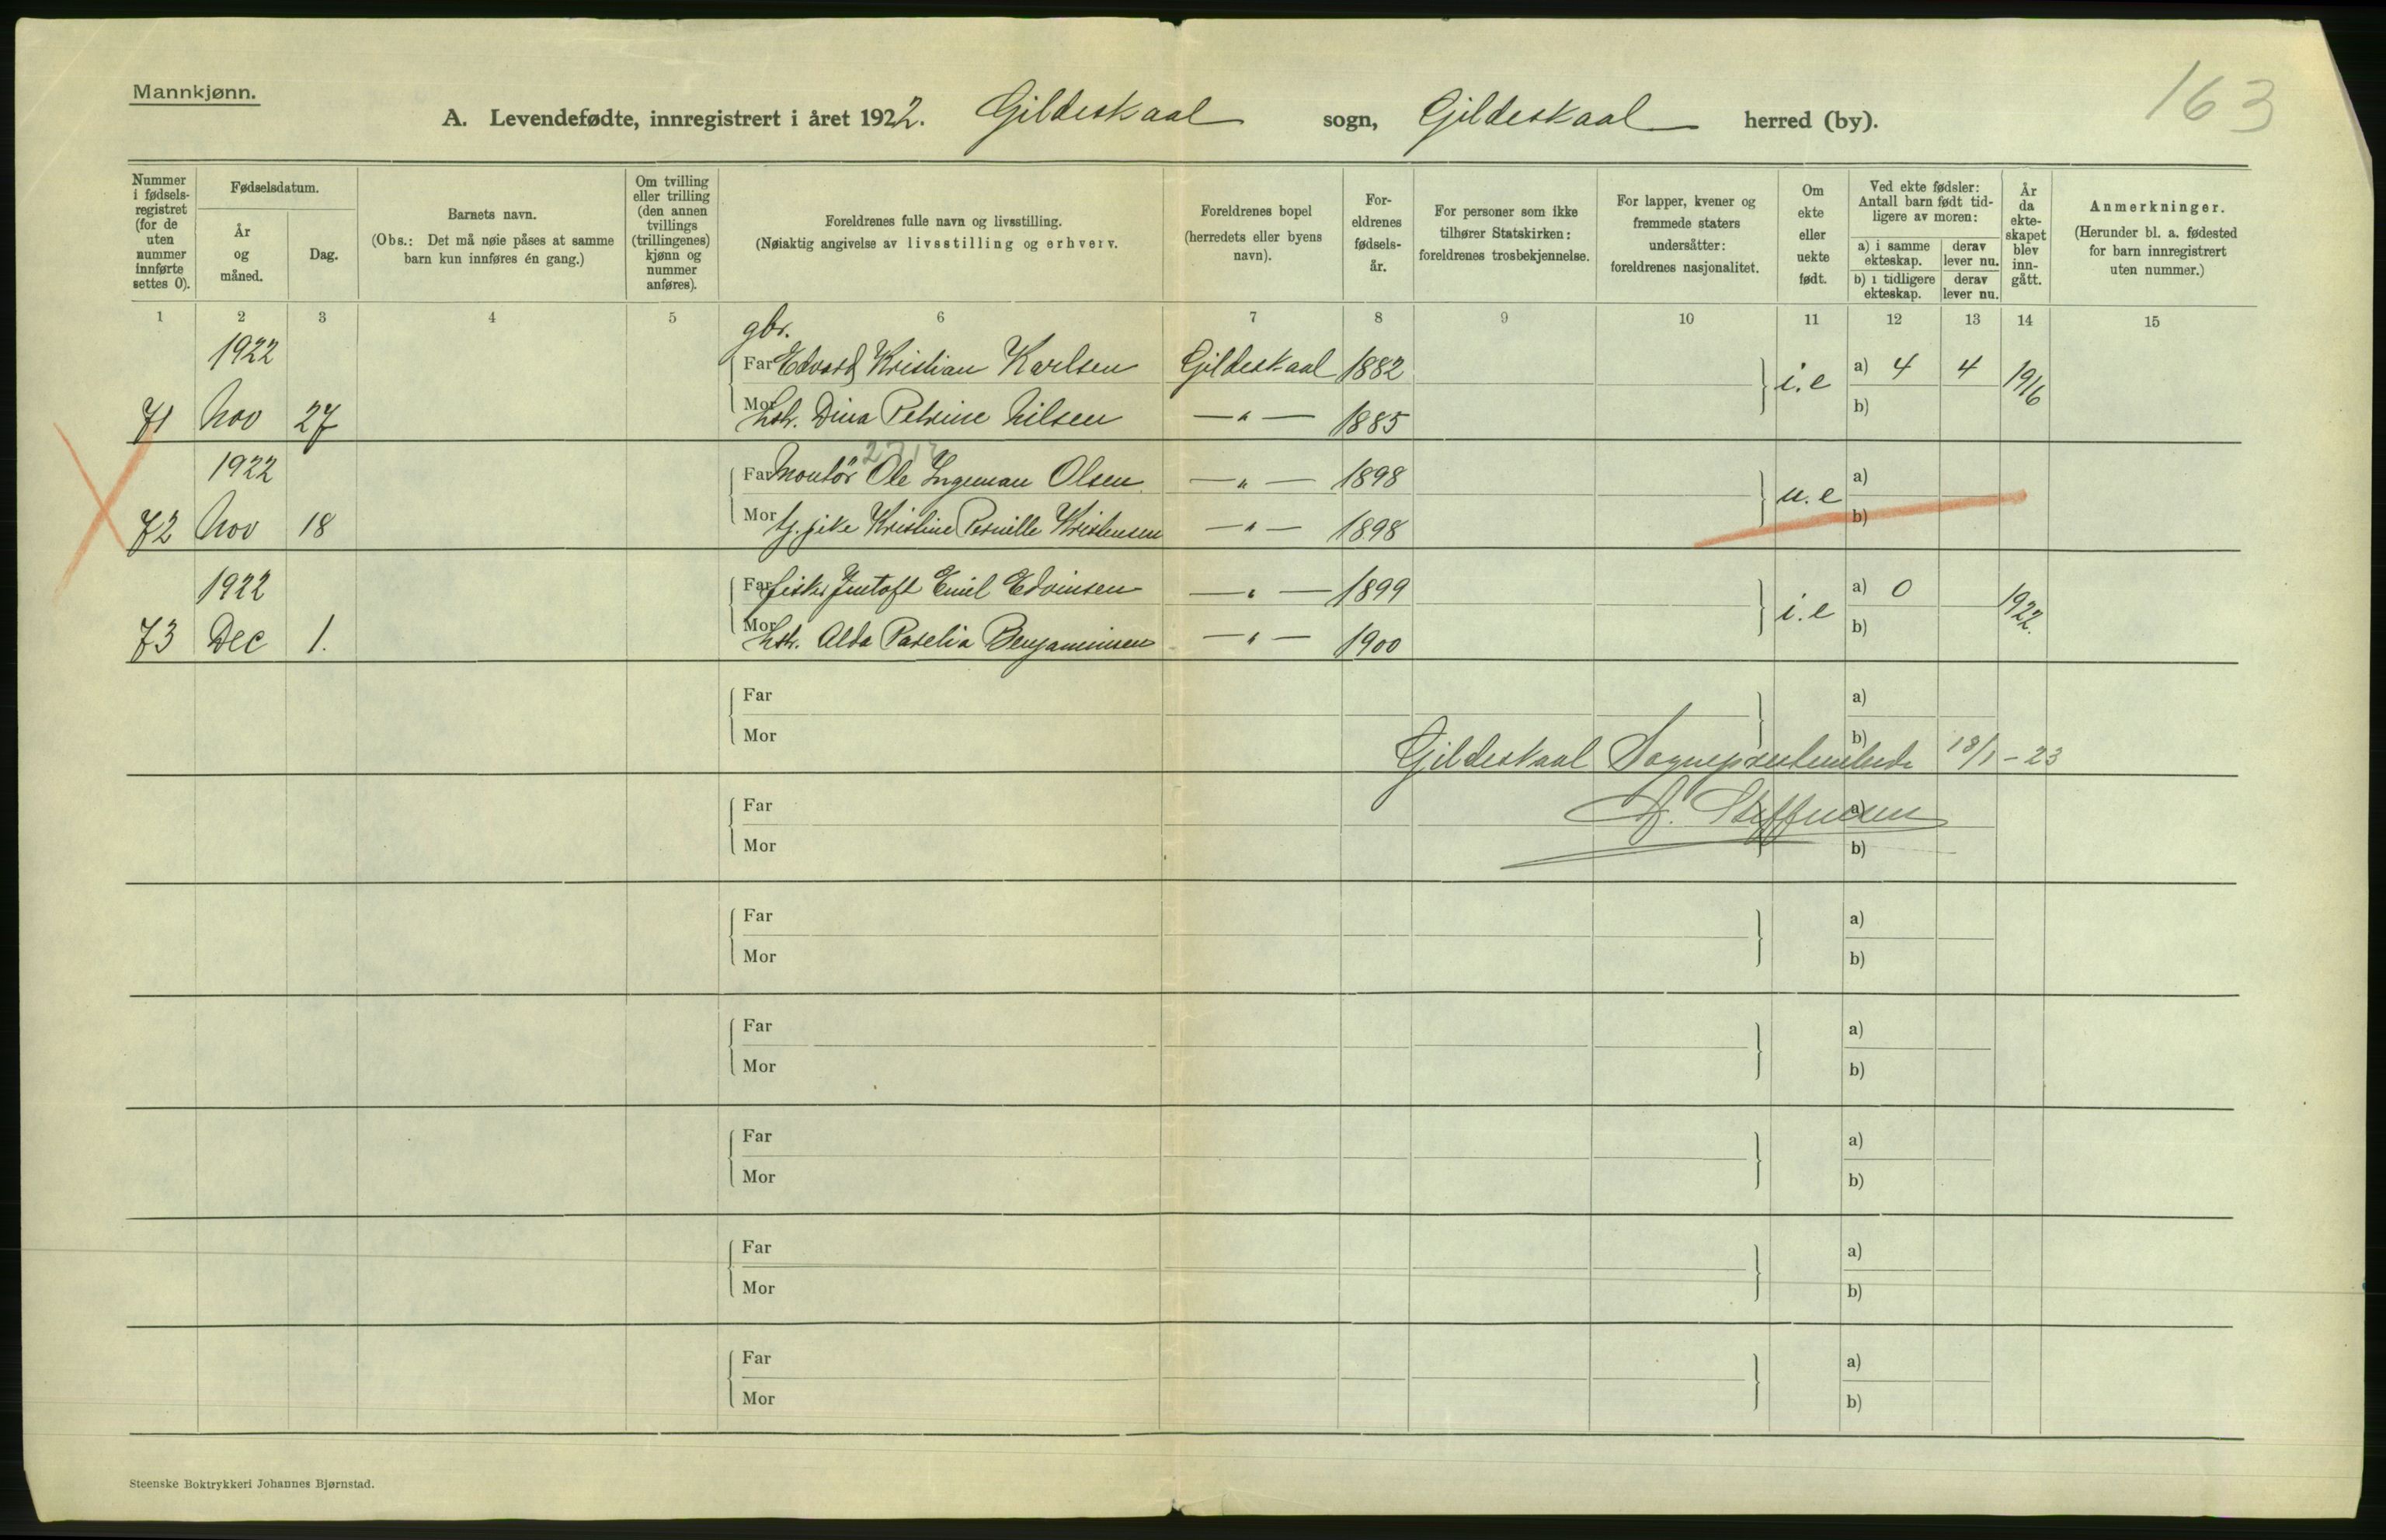 Mannkjønn.
163
A. Levendefødte, innregistrert i året 1922. Gildeskaal sogn, Gildeskaal herred (by).
Nummer i fødsels-registret (for de uten nummer innførte settes 0).
Fødselsdatum.
År og måned.
Dag.
Barnets navn.
(Obs.: Det må nøie påses at samme barn kun innføres én gang.)
Om tvilling eller trilling (den annen tvillings (trillingenes) kjønn og nummer anføres).
Foreldrenes fulle navn og livsstilling.
(Nøiaktig angivelse av livsstilling og erhverv.
Foreldrenes bopel (herredets eller byens navn).
For-eldrenes fødsels-år.
For personer som ikke tilhører Statskirken: foreldrenes trosbekjennelse.
For lapper, kvener og fremmede staters undersåtter: foreldrenes nasjonalitet.
Om ekte eller uekte født.
Ved ekte fødsler: Antall barn født tid-ligere av moren:
a) i samme ekteskap.
derav lever nu.
b) i tidligere ekteskap.
derav lever nu.
År da ekte-skapet blev inn-gått.
Anmerkninger.
(Herunder bl. a. fødested for barn innregistrert uten nummer.)
1 2 3 4 5 6 7 8 9 10 11 12 13 14 15
gbr.
1922
Far Edvard Kristian Karlsen Gildeskaal 1882 i.e a) 4 4 1916
71 Nov 27 Mor hstr. Dina Petrine Nilsen —"— 1885 b)
1922
Far Montør Ole Ingeman Olsen —"— 1898 u.e a)
72 Nov 18 Mor tj. pike Kristine Pernille Kristensen —"— 1898 b)
1922
Far fisker Emil Edvinsen —"— 1899 i.e a) 0 1922.
73 Dec 1. Mor hstr. Alda Benjaminsen —"— 1900 b)
Far a)
Mor b)
Gildeskaal Sogneprestembede 18/1 - 23
Far a)
A. Steffensen
Mor b)
Far a)
Mor b)
Far a)
Mor b)
Far a)
Mor b)
Far a)
Mor b)
Far a)
Mor b)
Steenske Boktrykkeri Johannes Bjørnstad.